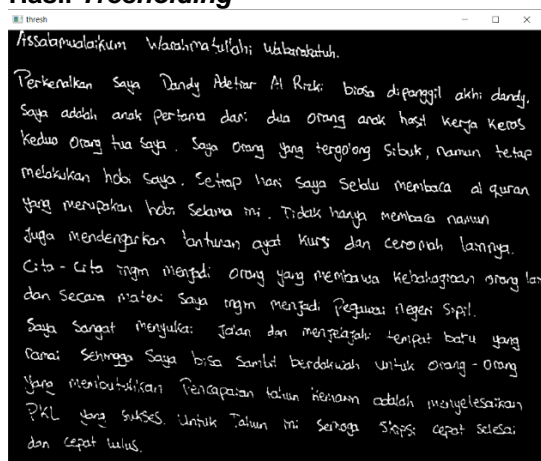 Hasil Tresholding
thresh
Assalamualaikum Warahmatullahi wabarakatuh.
Perkenalkan Saya Dandy Adetiar Al Rizki biasa dipanggil akhi dandy.
Saya adalah anak pertama dari dua orang anak hasil Kerja Keras
Kedua Orang tua Saya. Saya Orang yang tergolong Sibuk, namun tetap
melakukan hobi Saya. Setiap hari Saya Selalu membaca al quran
yang merupakan hobi Selama ini. Tidak hanya membaca namun
Juga mendengarkan lantunan ayat Kursi dan ceramah lainnya.
Cita-Cita ingin menjadi orang yang membawa Kebahagiaan orang lain
dan Secara materi Saya ingin menjadi Pegawai negeri Sipil.
Saya Sangat menyukai Jalan dan menjelajahi tempat baru yang
ramai Sehingga Saya bisa Sambil berdakwah untuk orang-orang
Yang membutuhkan. Pencapaian tahun Kemarin adalah menyelesaikan
PKL yang Sukses. Untuk Tahun ini Semoga Skripsi cepat selesai
dan cepat lulus.